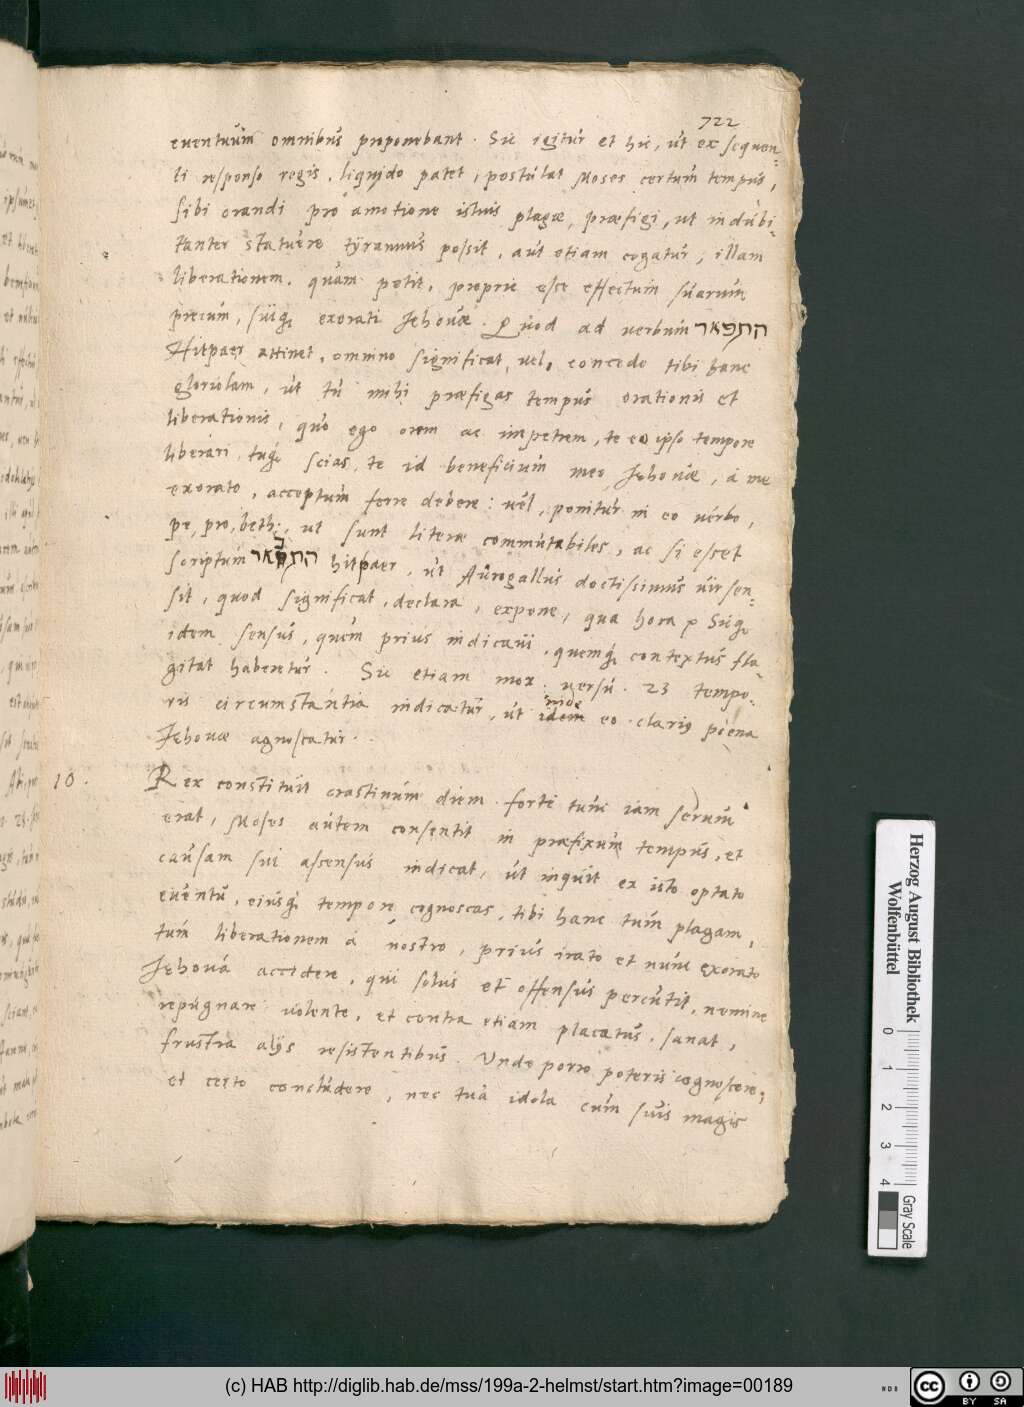 722
euentuum omnibus proponebant. Sic igitur et hic, ut ex sequen=
ti responso regis, liquido patet, postulat Moses certum tempus,
sibi orandi pro amotione istius plagæ, præfigi, ut indubi=
tanter statuere tyrannus possit, aut etiam cogatur, illam
liberationem, quam petit, proprie esse effectum suarum
precum, suiq; exorati Jehouæ. Quod ad uerbum התפאר
Hitpaer attinet, omnino significat, uel, concedo tibi hanc
gloriolam, ut tu mihi præfigas tempus orationis et
liberationis, quo ego orem ac impetrem, te eo ipso tempore
liberari, tuq; scias, te id beneficium meo Jehouæ, a me
exorato, acceptum ferre debere: uel, ponitur in eo uerbo,
pe, pro, beth, ut sunt literæ commutabiles, ac si esset
ב
scriptum התפאר hitpaer, ut Aurogallus doctissimus uir sen=
sit, quod significat, declara, expone, qua hora &c Sitq;
idem sensus, quem prius indicaui, quemq; contextus fla
gitat habentur. Sic etiam mox uersu. 23 tempo=
inde
ris circumstantia indicatur, ut idem eo clarius poena
Jehouæ agnoscatur.
10.
Rex constituit crastinum diem forte tum iam serum
erat, Moses autem consentit in præfixum tempus, et
causam sui assensus indicat, ut inquit ex isto optato
euentu, eiusq; tempore cognoscas, tibi hanc tum plagam,
tum liberationem a nostro, prius irato et nunc exorato
Jehoua accidere, qui solus et offensus percutit, nemine
repugnare uolente, et contra etiam placatus, sanat,
frustra alijs resistentibus. Unde porro poteris cognoscere,
et certo concludere, nec tua idola cum suis magis
Herzog August Bibliothek
Wolfenbüttel
0 1 2 3 4
Gray Scale
(c) HAB http://diglib.hab.de/mss/199a-2-helmst/start.htm?image=00189
cc BY SA